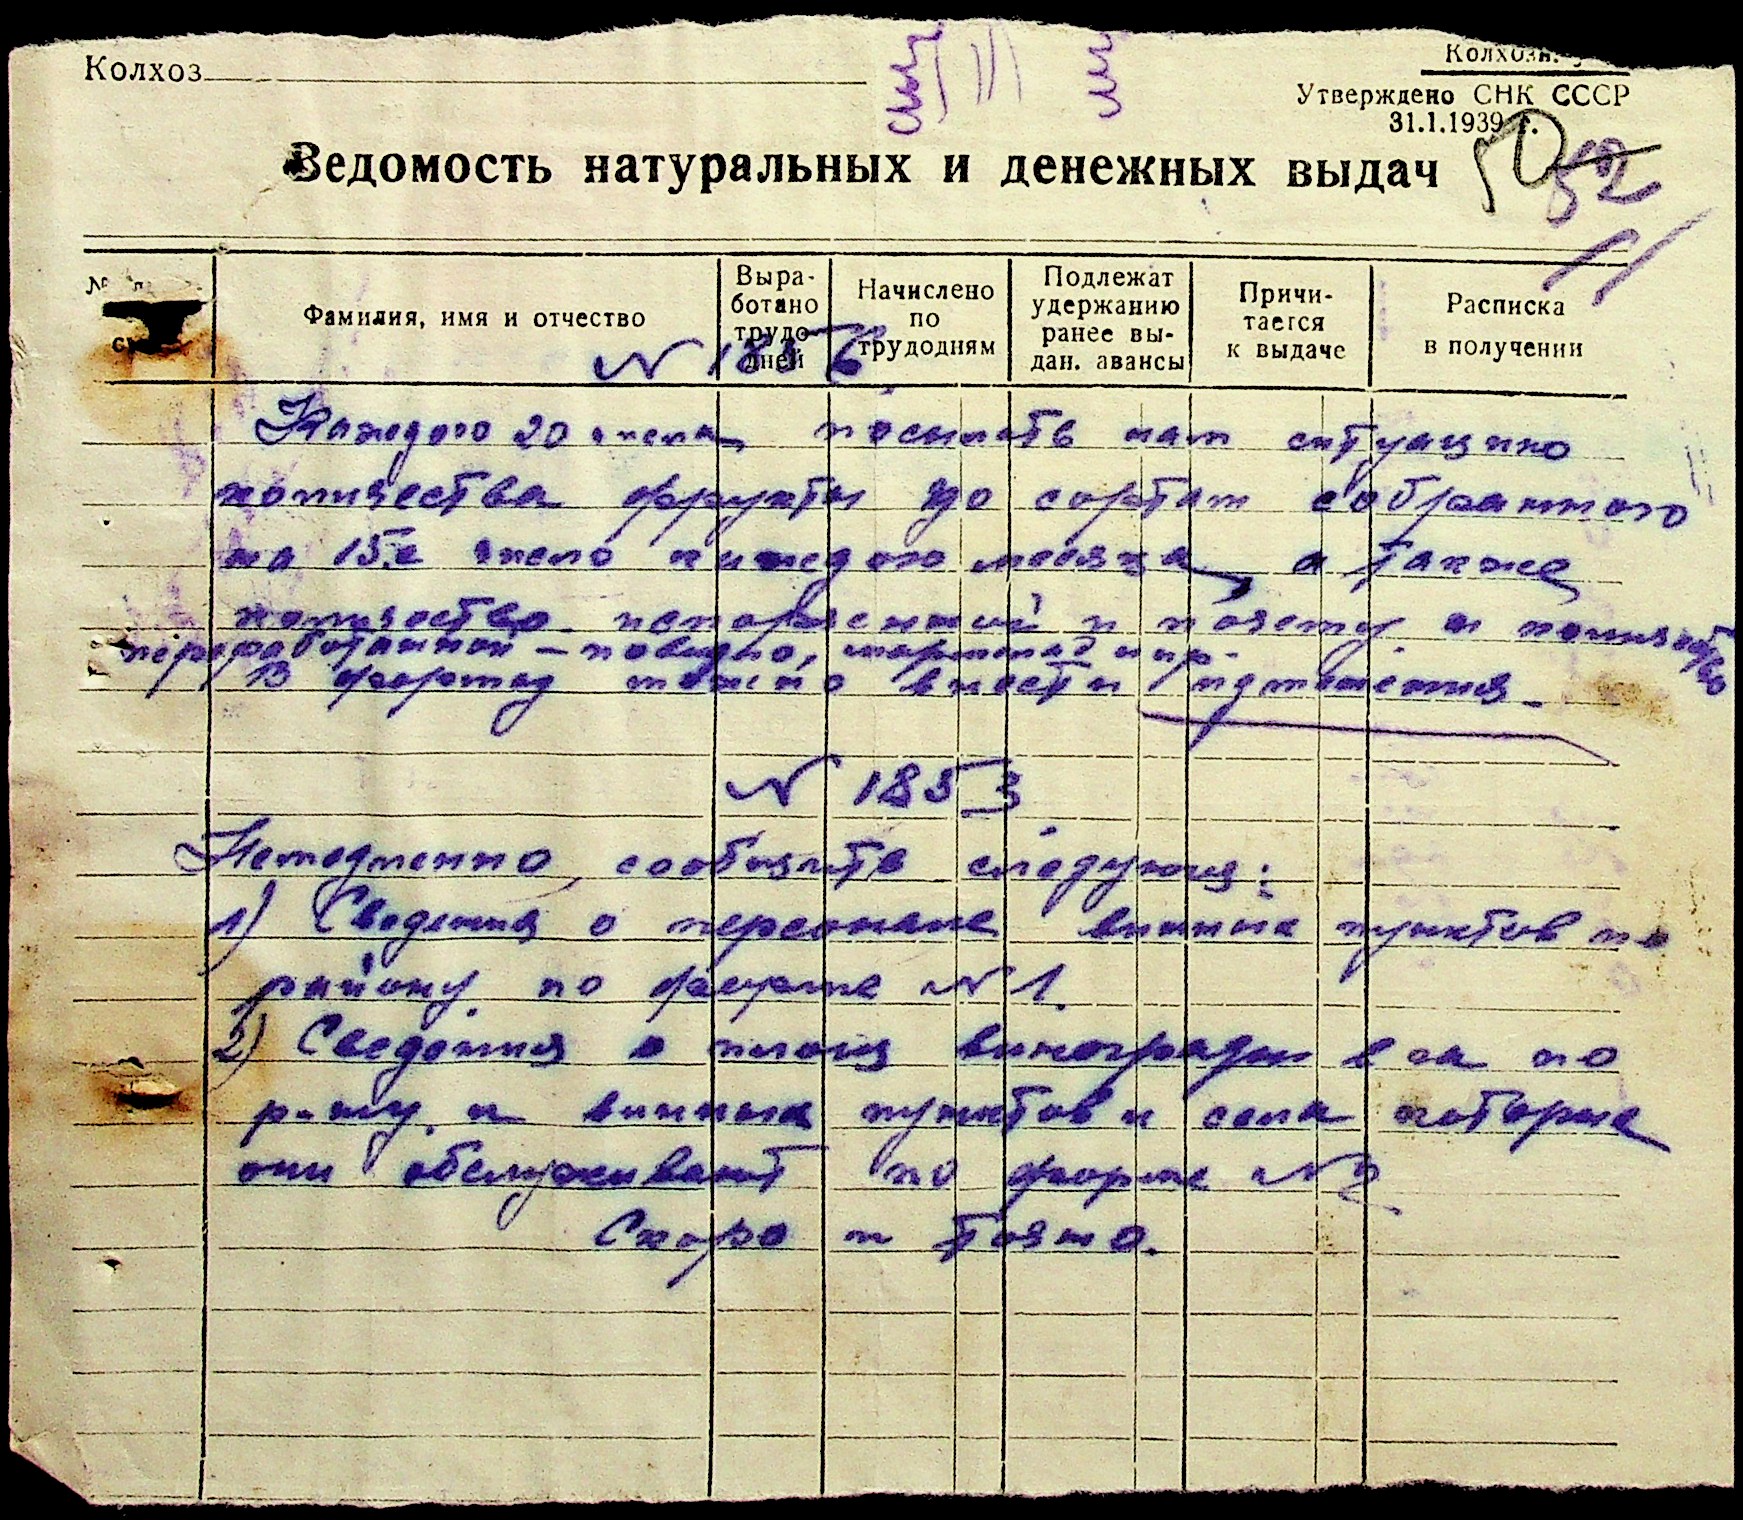 Колхоз
Утверждено СНК СССР
31.1.1939 г.
50 52
Ведомость натуральных и денежных выдач
Фамилия, имя и отчество
Выра-
ботано
трудо-
дней
Начислено
по
трудодням
Подлежат
удержанию
ранее вы-
дан. авансы
Причи-
тается
к выдаче
Расписка
в получении
N 1856
Каждого 20 числа, посылать нам ситуацию
количества фрукты по сортам собранного
на 15е число каждого месяца, а также
количество и
переработанной – повидло, мармелад и пр.
В можно внести
N 1853
Немедленно, сообщить следующия:
1) Сведения о персонале винных пунктов по
району по форме N 1.
2) Сведения о площ виноградн в га по
р-ну и винных пунктов и села которые
они обслуживают по форме N 2
Скоро и точно.